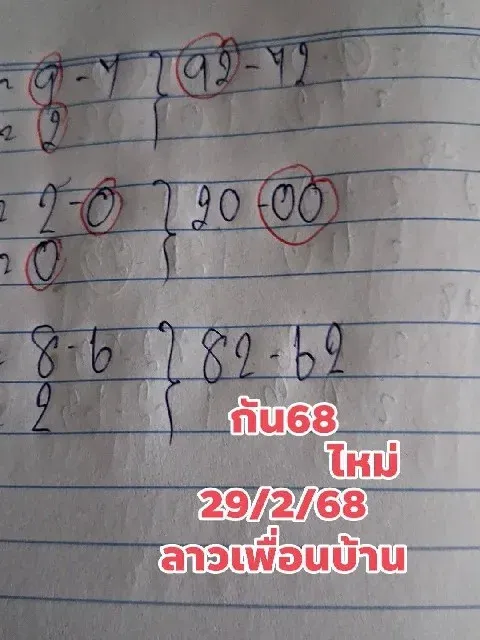 9-7 } 92-72
2
2-0 } 20-00
0
8-6 } 82-62
2
กัน68
ไหม่
29/2/68
ลาวเพื่อนบ้าน